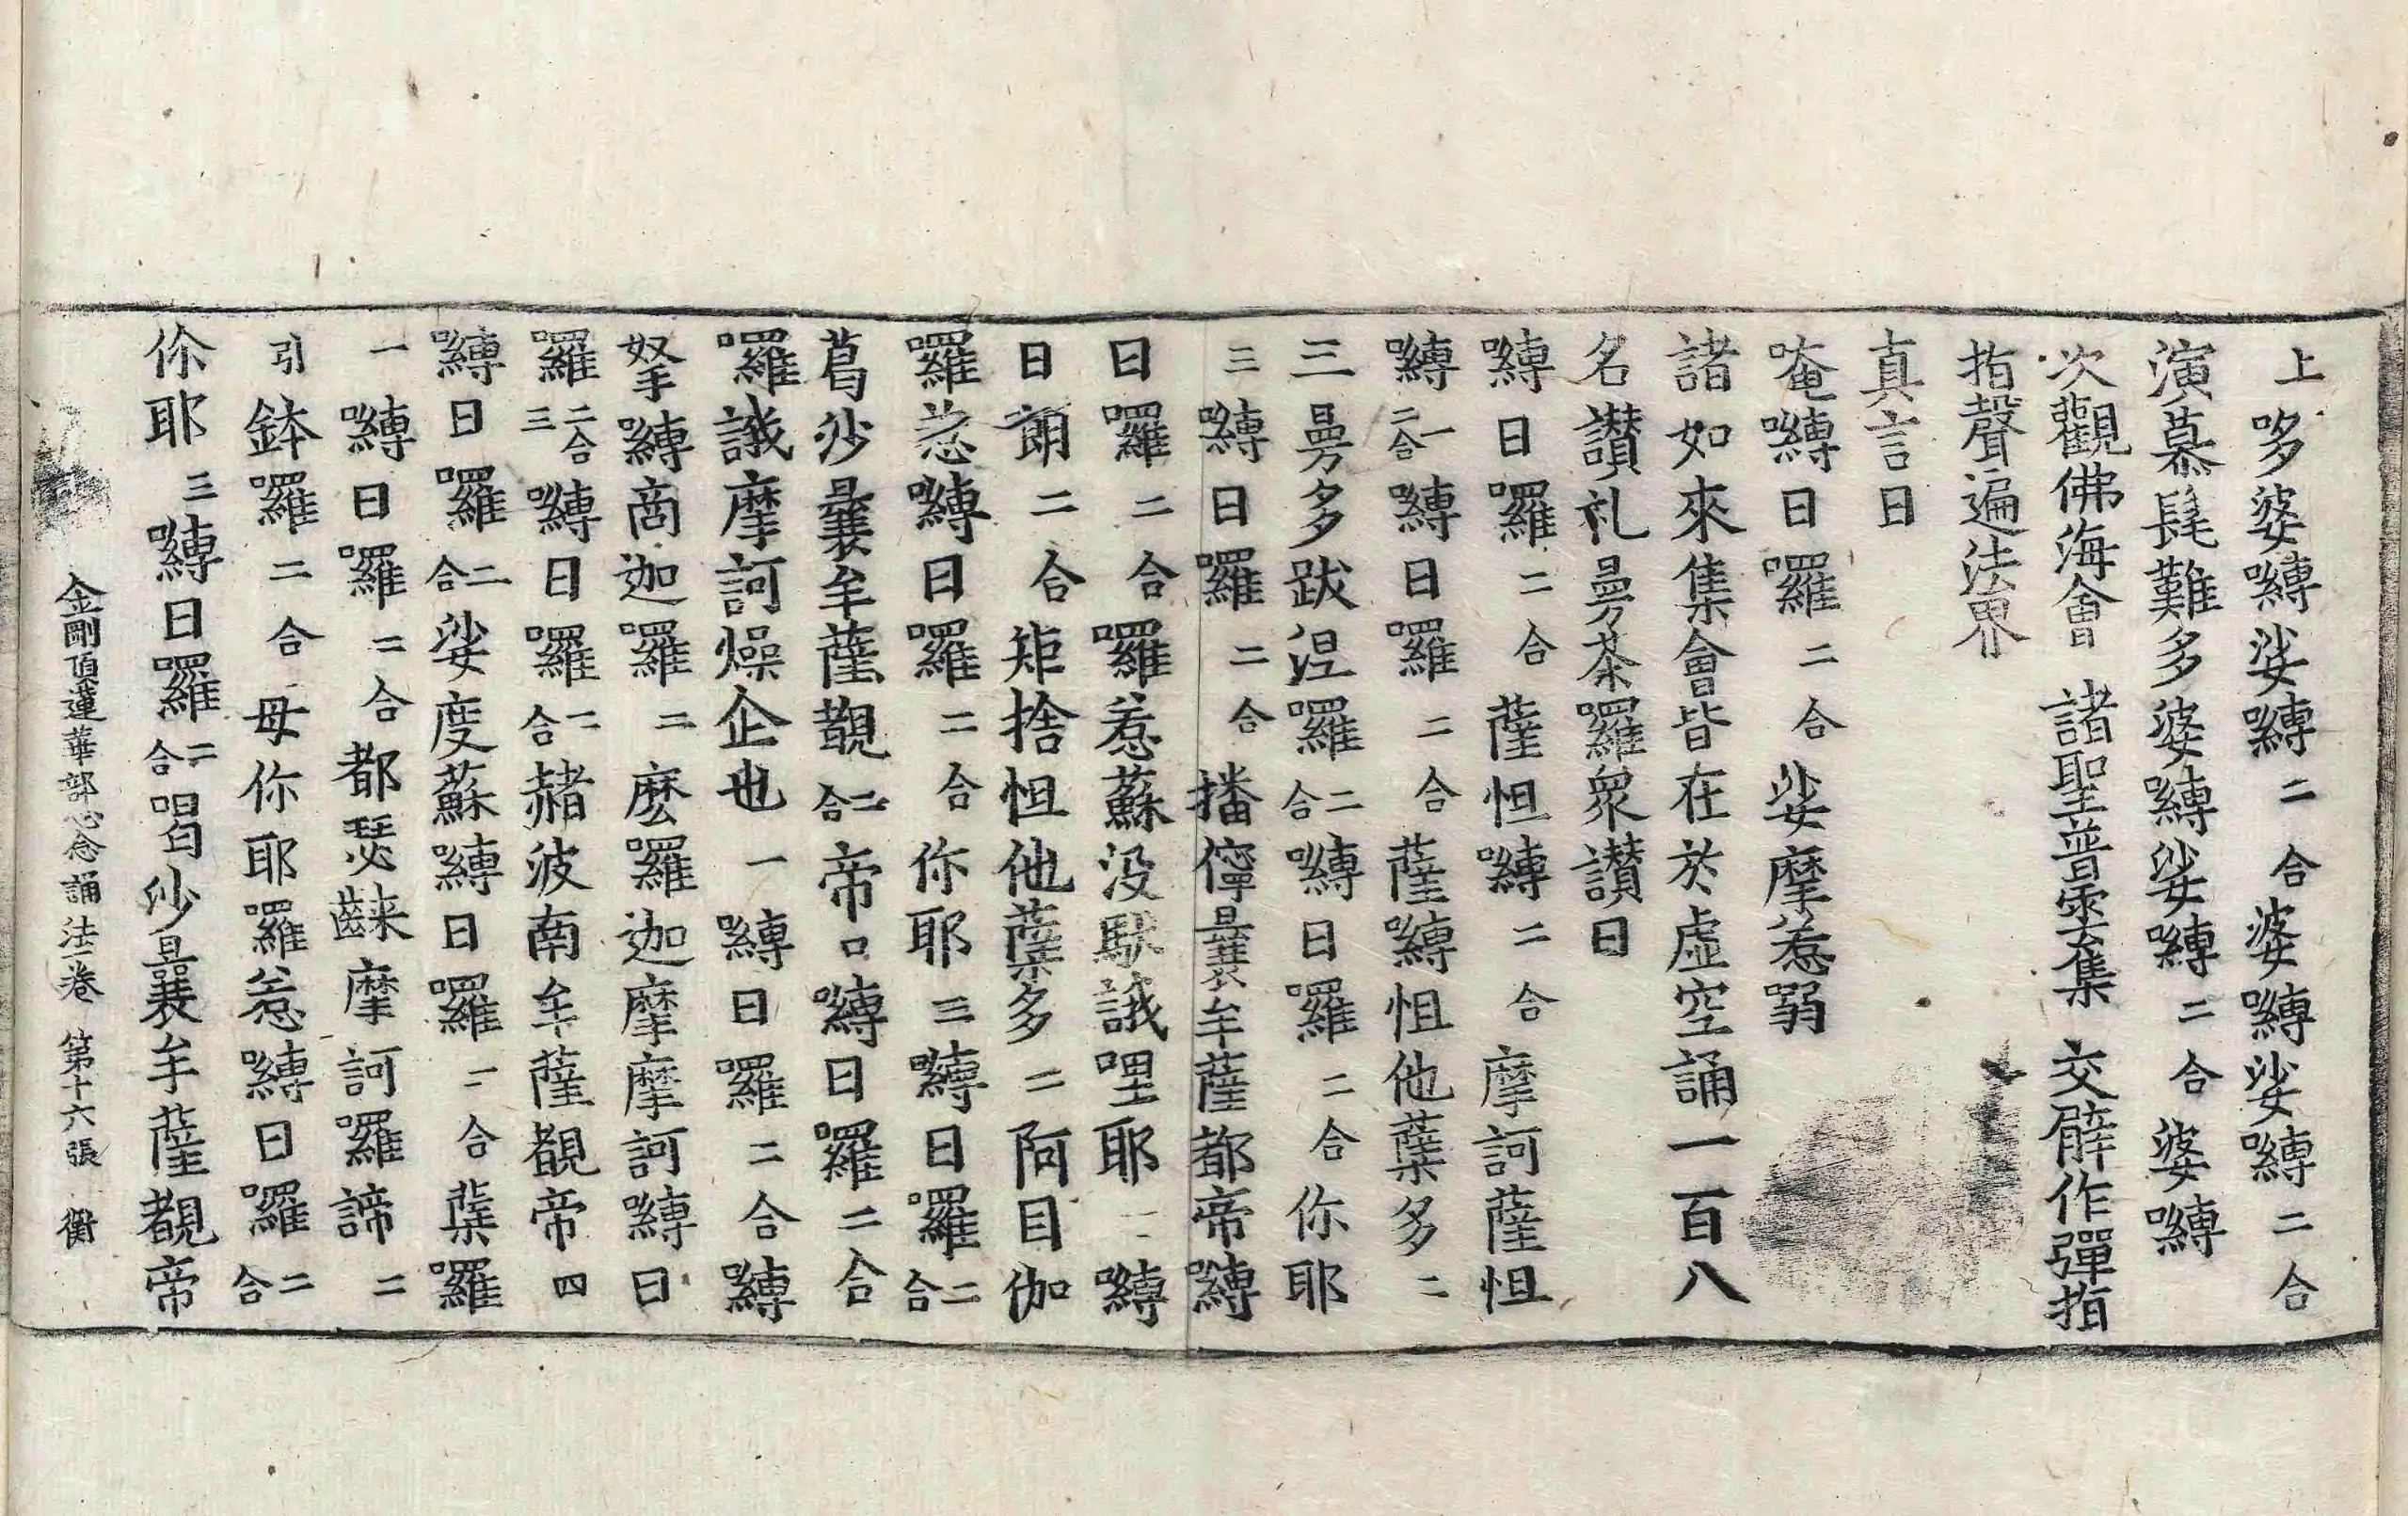 上哆婆嚩娑嚩二合婆嚩娑嚩二合
演慕髦難多婆嚩娑嚩二合婆嚩
次觀佛海會 諸聖普雲集 交臂作彈指
指聲遍法界
真言曰
唵嚩日囉二合娑摩惹弱
諸如來集會皆在於虛空誦一百八
名讃礼曼茶羅衆讃曰
嚩日囉二合薩怛嚩二合摩訶薩怛
嚩二合一嚩日囉二合薩嚩怛他蘗多二
三曼多跋涅囉二合嚩日囉二合你耶
三嚩日囉二合播儜曩牟薩都帝嚩
日囉二合囉惹蘇沒馱誐哩耶一嚩
日朗二合矩捨怛他蘗多二阿目伽
囉惹嚩日囉二合你耶三嚩日囉二合
葛沙曩牟薩覩二合帝口嚩日囉二合
囉誐摩訶燥企也一嚩日囉二合嚩
拏嚩商迦囉二麽囉迦摩摩訶嚩日
囉二合三嚩日囉二合赭波南牟薩覩帝四
嚩日囉二合娑度蘇嚩日囉二合蘗囉
一嚩日囉二合都瑟𪘨摩訶囉諦二
引鉢囉二合母你耶囉惹嚩日囉二合
你耶三嚩日囉二合唱沙曩牟薩覩帝
金剛頂蓮華部心念誦法一卷 第十六張 衡